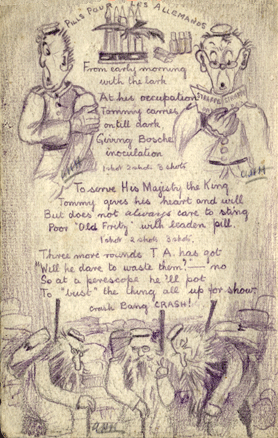 PILLS POUR LES ALLEMANDS
From early morning
with the lark
At his occupation
Tommy carries
ontill dark
Giving Bosche
inoculation
1 shot 2 shots 3 shots.
To serve His Majesty the King
Tommy gives his heart and will
But does not always care to sting
Poor "Old Fritz" with leaden pill.
1 shot 2 shots 3 shots.
Three more rounds T.A. has got
"Will he dare to waste them?"— no
So at a perescope he'll pot
To "bust" the thing all up for show.
Crash Bang CRASH!